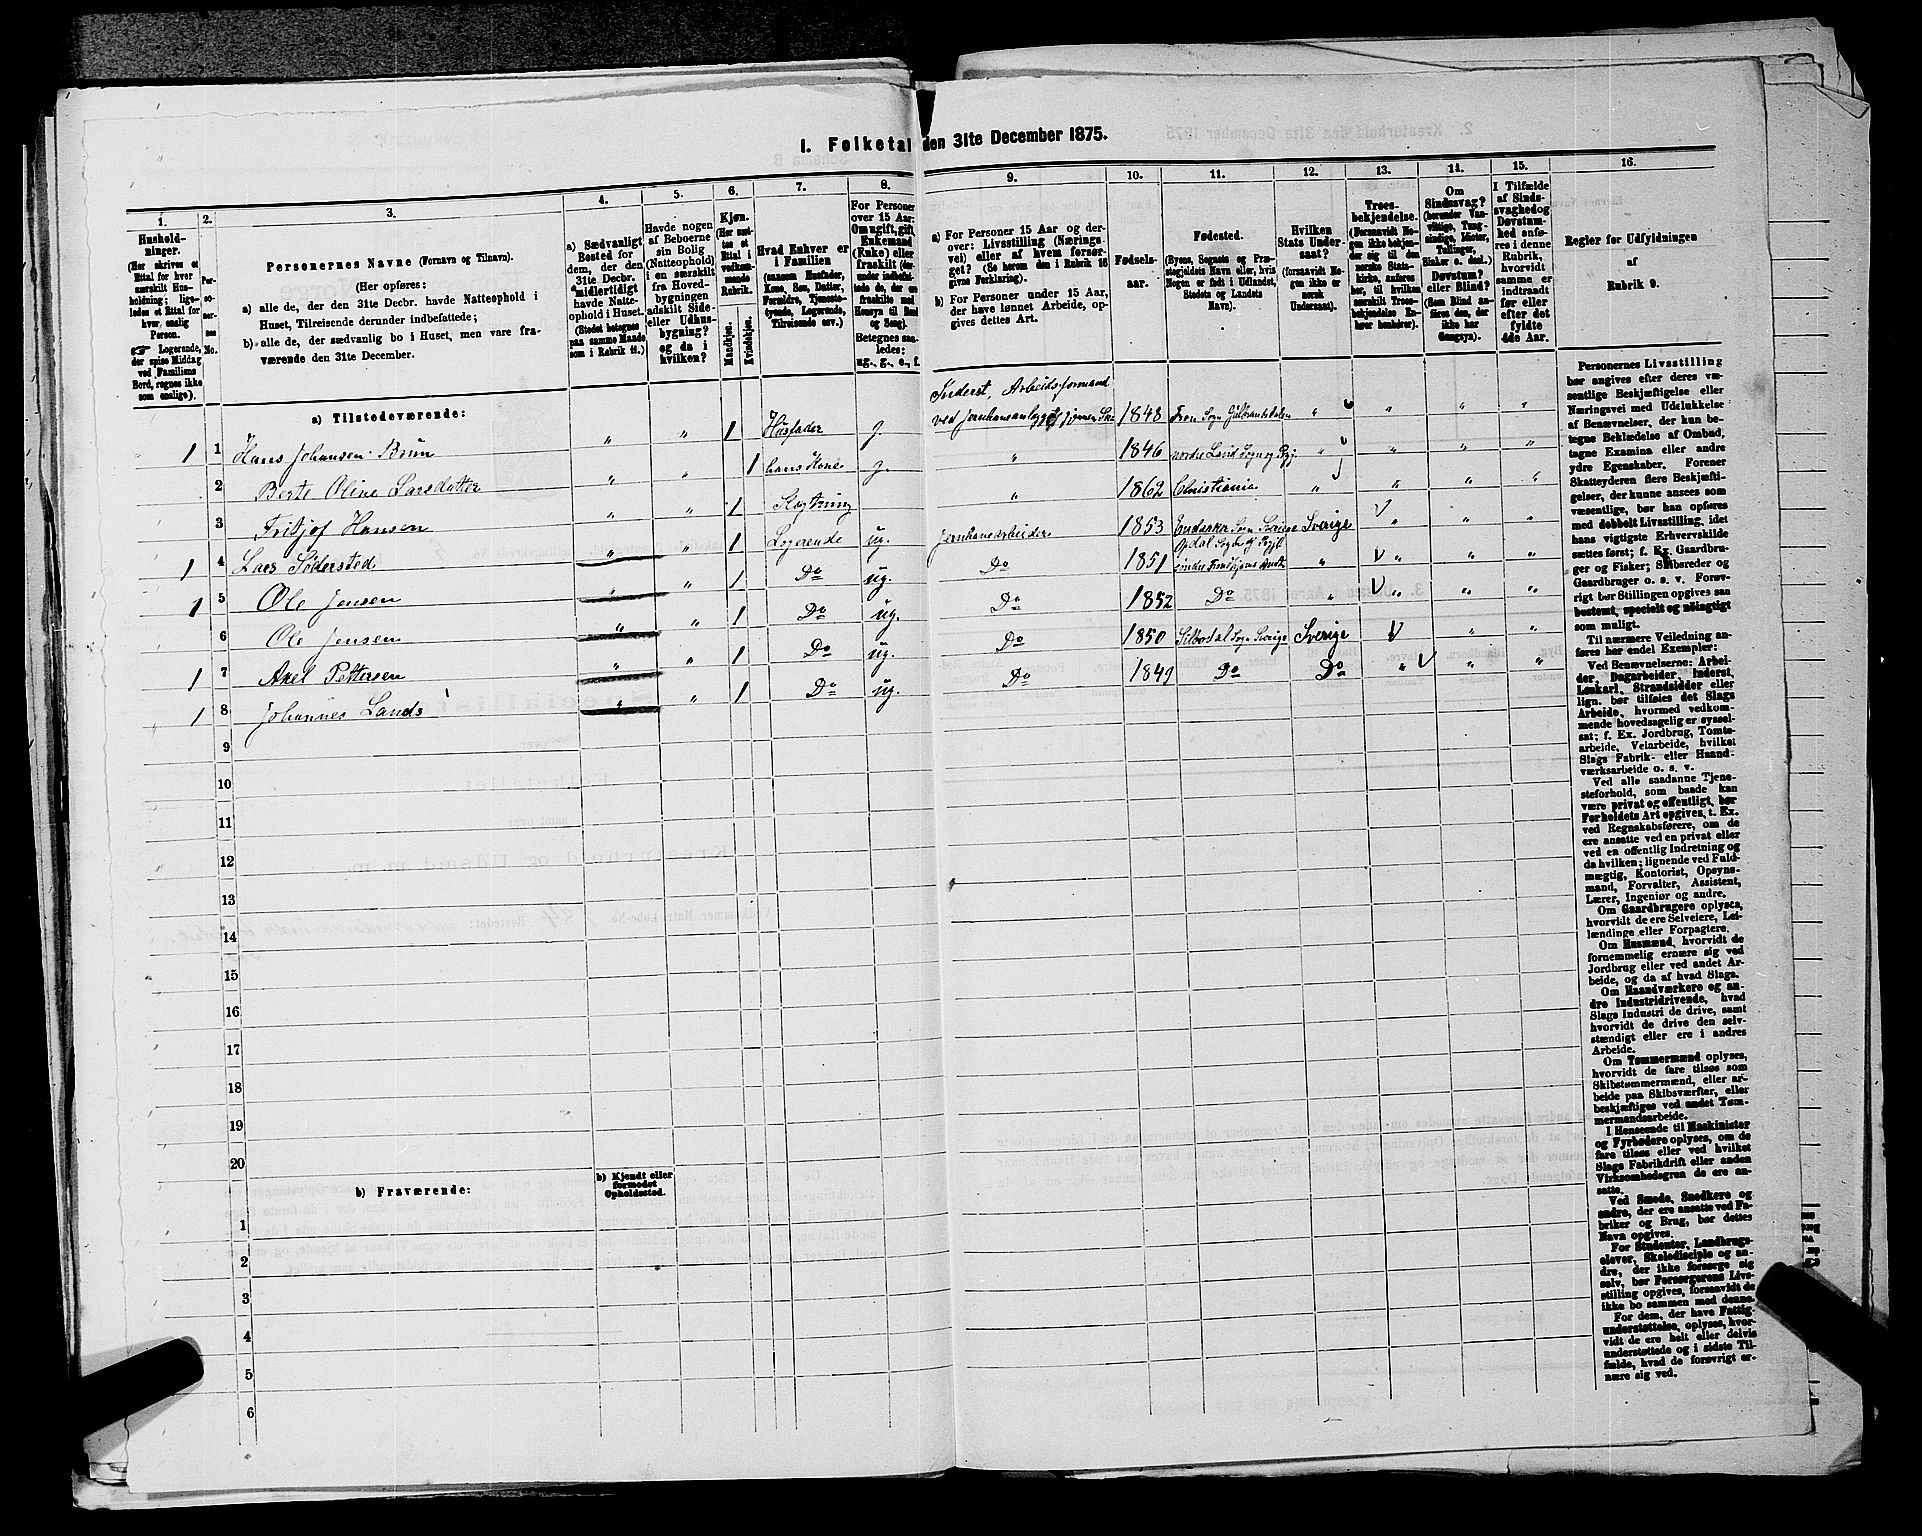 1. Folketal den 31te December 1875.
1. 2. 3. 4. 5. 6. 7. 8. 9. 10. 11. 12. 13. 14. 15. 16.
Hushold-
ninger.
(Her skrives et
Ettal for hver
særskilt Hus-
holdning; lige-
ledes et Ettal for
hver enslig
Person.
Logerende,
der spise Middag
ved Familiens
Bord, regnes ikke
som enslige).
Per-
so-
ner-
nes
No.
Personernes Navne (Fornavn og Tilnavn).
(Her opføres:
a) alle de, der den 31te Decbr. havde Natteophold i
Huset, Tilreisende derunder indbefattede;
b) alle de, der sædvanlig bo i Huset, men vare fra-
værende den 31te December.
a) Sædvanligt
Bosted for
dem, der den
31te Decbr.
midlertidigt
havde Natte-
ophold i Huset.
(Stedet betegnes
paa samme Maade
som i Rubrik 11.)
Havde nogen
af Beboerne
sin Bolig
(Natteophold)
i en særskilt
fra Hoved-
bygningen
adskilt Side-
eller Udhus-
bygning?
og da i
hvilken?
Kjøn.
(Her sæt-
tes et
Ettal i
vedkom-
mende
Rubrik.
Mandkjøn.
Kvindekjøn.
Hvad Enhver er
i Familien
(saasom Husfader,
Kone, Søn, Datter,
Forældre, Tjeneste-
tyende, Logerende,
Tilreisende osv.)
For Personer
over 15 Aar:
Om ugift, gift,
Enkemand
(Enke) eller
fraskilt (der-
under indbefat-
tede de, der ere
fraskilte med
Hensyn til Bord
og Seng).
Betegnes saa-
ledes:
ug., g., e., f.
a) For Personer 15 Aar og der-
over: Livsstilling (Nærings-
vei) eller af hvem forsør-
get? (Se herom den i Rubrik 16
givne Forklaring).
b) For Personer under 15 Aar,
der have lønnet Arbeide, op-
gives dettes Art.
Fødsels-
aar.
Fødested.
(Byens, Sognets og Præ-
stegjeldets Navn eller, hvis
Nogen er født i Udlandet,
Stedets og Landets
Navn).
Hvilken
Stats Under-
saat?
(forsaavidt No-
gen ikke er
norsk
Undersaat).
Troes-
bekjendelse.
(Forsaavidt No-
gen ikke bekjen-
der sig til den
norske Stats-
kirke, anføres
her, til hvilket
særskilt Troes-
bekjendelse En-
hver henhører).
Om
Sindssvag?
(herunder Van-
vittige, Tung-
sindige, Idioter,
Tullinger,
Sinker o. desl.)
Døvstum?
eller Blind?
(Som Blind an-
føres den, der
ikke har
Gangsyn).
I Tilfælde
af Sinds-
svaghed og
Døvstum-
hed anfø-
res i denne
Rubrik,
hvorvidt
samme er
indtraadt
før eller
efter det
fyldte
4de Aar.
Regler for Udfyldningen
af
Rubrik 9.
a) Tilstedeværende:
Inderst, Arbeidsformand
1 1 Hans Johansen Brun „ „ 1 Husfader g. ved Jernbaneanlægget 1848 Fron Sogn Gulbrandsdalen „ „ „ „
2 Berte Oline Larsdatter „ „ 1 hans Kone g. „ 1846 nordre Land Sogn og Pgj. „ „ „ „
3 Fritjof Hansen „ „ 1 Slægtning „ 1862 Christiania „ „ „ „
1 4 Lars Södersted „ „ 1 Logerende ug. Jernbanearbeider 1853 Sogn Sverige Sverige „ „ „
1 5 Ole Jensen „ „ 1 Do ug. Do 1851 Opdal Sogn og Pgjl. søndre Trondhjems Amt „ „ „ „
6 Ole Jensen „ „ 1 Do ug. Do 1852 Do „ „ „ „
1 7 Axel Pettersen „ „ 1 Do ug. Do 1850 Silbodal Sogn Sverige Sverige „ „
1 8 Johannes Lands „ „ 1 Do ug. Do 1849 Do Do „ „ „
9
10
11
12
13
14
15
16
17
18
19
20
b) Fraværende:
b) Kjendt eller
formodet
Opholdssted.
1
2
3
4
5
6
Personernes Livsstilling
bør angives efter deres væ-
sentlige Beskjæftigelse eller
Næringsvei med Udelukkelse
af Benævnelser, der kun be-
tegne Beklædelse af Ombud,
tagne Examina eller andre
ydre Egenskaber. Forener
Skatteyderen flere Beskjæfti-
gelser, der kunne ansees som
væsentlige, bør han opføres
med dobbelt Livsstilling, idet
hans vigtigste Erhvervskilde
sættes først; f. Ex. Gaardbru-
ger og Fisker; Skibsreder og
Gaardbruger o. s. v. Forøv-
rigt bør Stillingen opgives saa
bestemt, specielt og nöiagtigt
som muligt.
Til nærmere Veiledning an-
føres her endel Exempler:
Ved Benævnelserne: Arbei-
der, Dagarbeider, Inderst,
Løskarl, Strandsidder eller
lign. bør tilføies det Slags
Arbeide, hvormed vedkom-
mende hovedsagelig er syssel-
sat; f. Ex. Jordbrug, Tomte-
arbeide, Veiarbeide, hvilket
Slags Fabrik- eller Haand-
værksarbeide o. s. v.
Ved alle saadanne Tjene-
steforhold, som baade kan
være privat og offentligt, bør
Forholdets Art opgives, t. Ex.
ved Regnskabsførere, om de
ere ansatte ved en privat eller
ved en offentlig Indretning og
da hvilken; lignende ved Fuld-
mægtig, Kontorist, Opsyns-
mand, Forvalter, Assistent,
Lærer, Ingeniør og andre.
Om Gaardbrugere oplyses,
hvorvidt de ere Selveiere, Lei-
lændinge eller Forpagtere.
Om Husmænd, hvorvidt de
fornemmelig ernære sig ved
Jordbrug eller ved andet Ar-
beide, og da af hvad Slags.
Om Haandværkere og an-
dre Industridrivende, hvad
Slags Industri de drive, samt
hvorvidt de drive den selv-
stændigt eller ere i andres
Arbeide.
Om Tømmermænd oplyses,
hvorvidt de fare tilsøs som
Skibstømmermænd, eller ar-
beide paa Skibsværfter, eller
beskjæftiges ved andet Tøm-
mermandsarbeide.
I Henseende til Maskinister
og Fyrbødere oplyses, om de
fare tilsøs eller ved hvilket
Slags Fabrikdrift eller anden
Virksomhedsgren de ere an-
satte.
Ved Smede, Snedkere og
andre, der ere ansatte ved Fa-
briker og Brug, bør dettes
Navn opgives.
For Studenter, Landbrugs-
elever, Skoledisciple og an-
dre, der ikke forsørge sig
selv, bør Forsørgerens Livs-
stilling opgives, forsaavidt de
ikke bo sammen med denne.
For dem, der have Fattig-
understøttelse, oplyses, hvor-
vidt de ere helt eller delvis
understøttede og i sidste Til-
fælde, hvad de forøvrigt er-
nære sig ved.